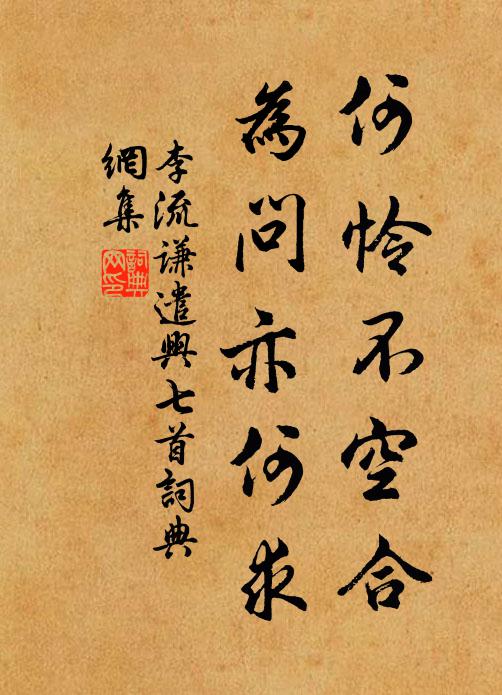 何怜不空合
為問亦何求
李流謙遣興七首詞典
網集
詞典
网印